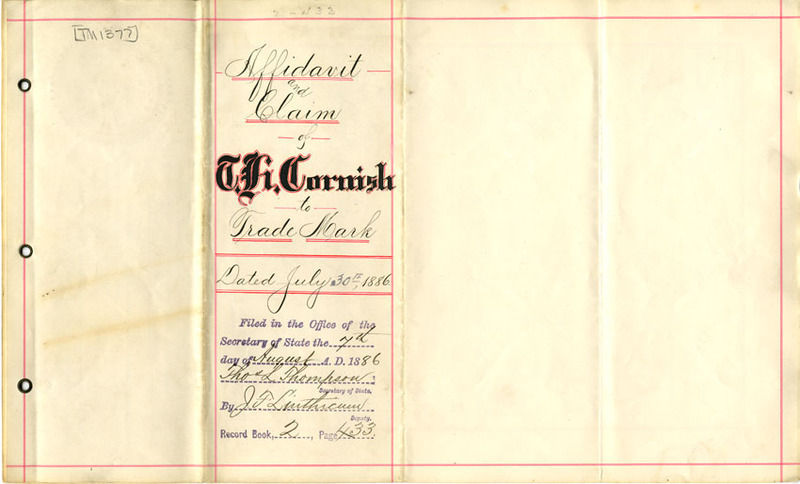 [TM1377]
Affidavit
and
Claim
of
T. H. Cornish
to
Trade Mark
Dated July 30th, 1886.
Filed in the Office of the
Secretary of State the 7th
day of August A. D. 1886
Thos L. Thompson
Secretary of State.
By J. F. Linthicum
Deputy.
Record Book, 2, Page 433